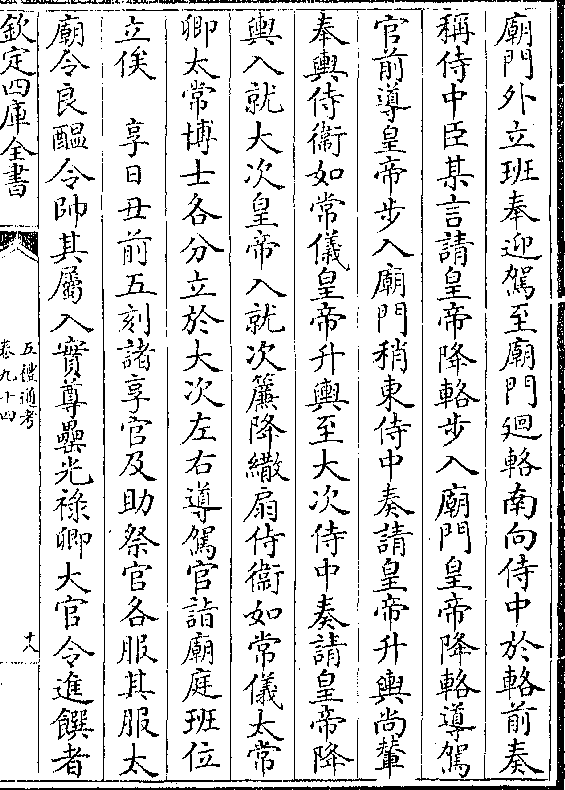 廟門外立班奉迎駕至廟門廻輅南向侍中於輅前奏
稱侍中臣某言請皇帝降輅步入廟門皇帝降輅導駕
官前導皇帝步入廟門稍東侍中奏請皇帝升輿尚輦
奉輿侍衞如常儀皇帝升輿至大次侍中奏請皇帝降
輿入就大次皇帝入就次簾降繖扇侍衞如常儀太常
卿太常博士各分立於大次左右導駕官詣廟庭班位
立俟　享日丑前五刻諸享官及助祭官各服其服太
廟令良醞令帥其屬入實尊罍光祿卿大官令進饌者
欽定四庫全書
五禮通考
卷九十四
十八